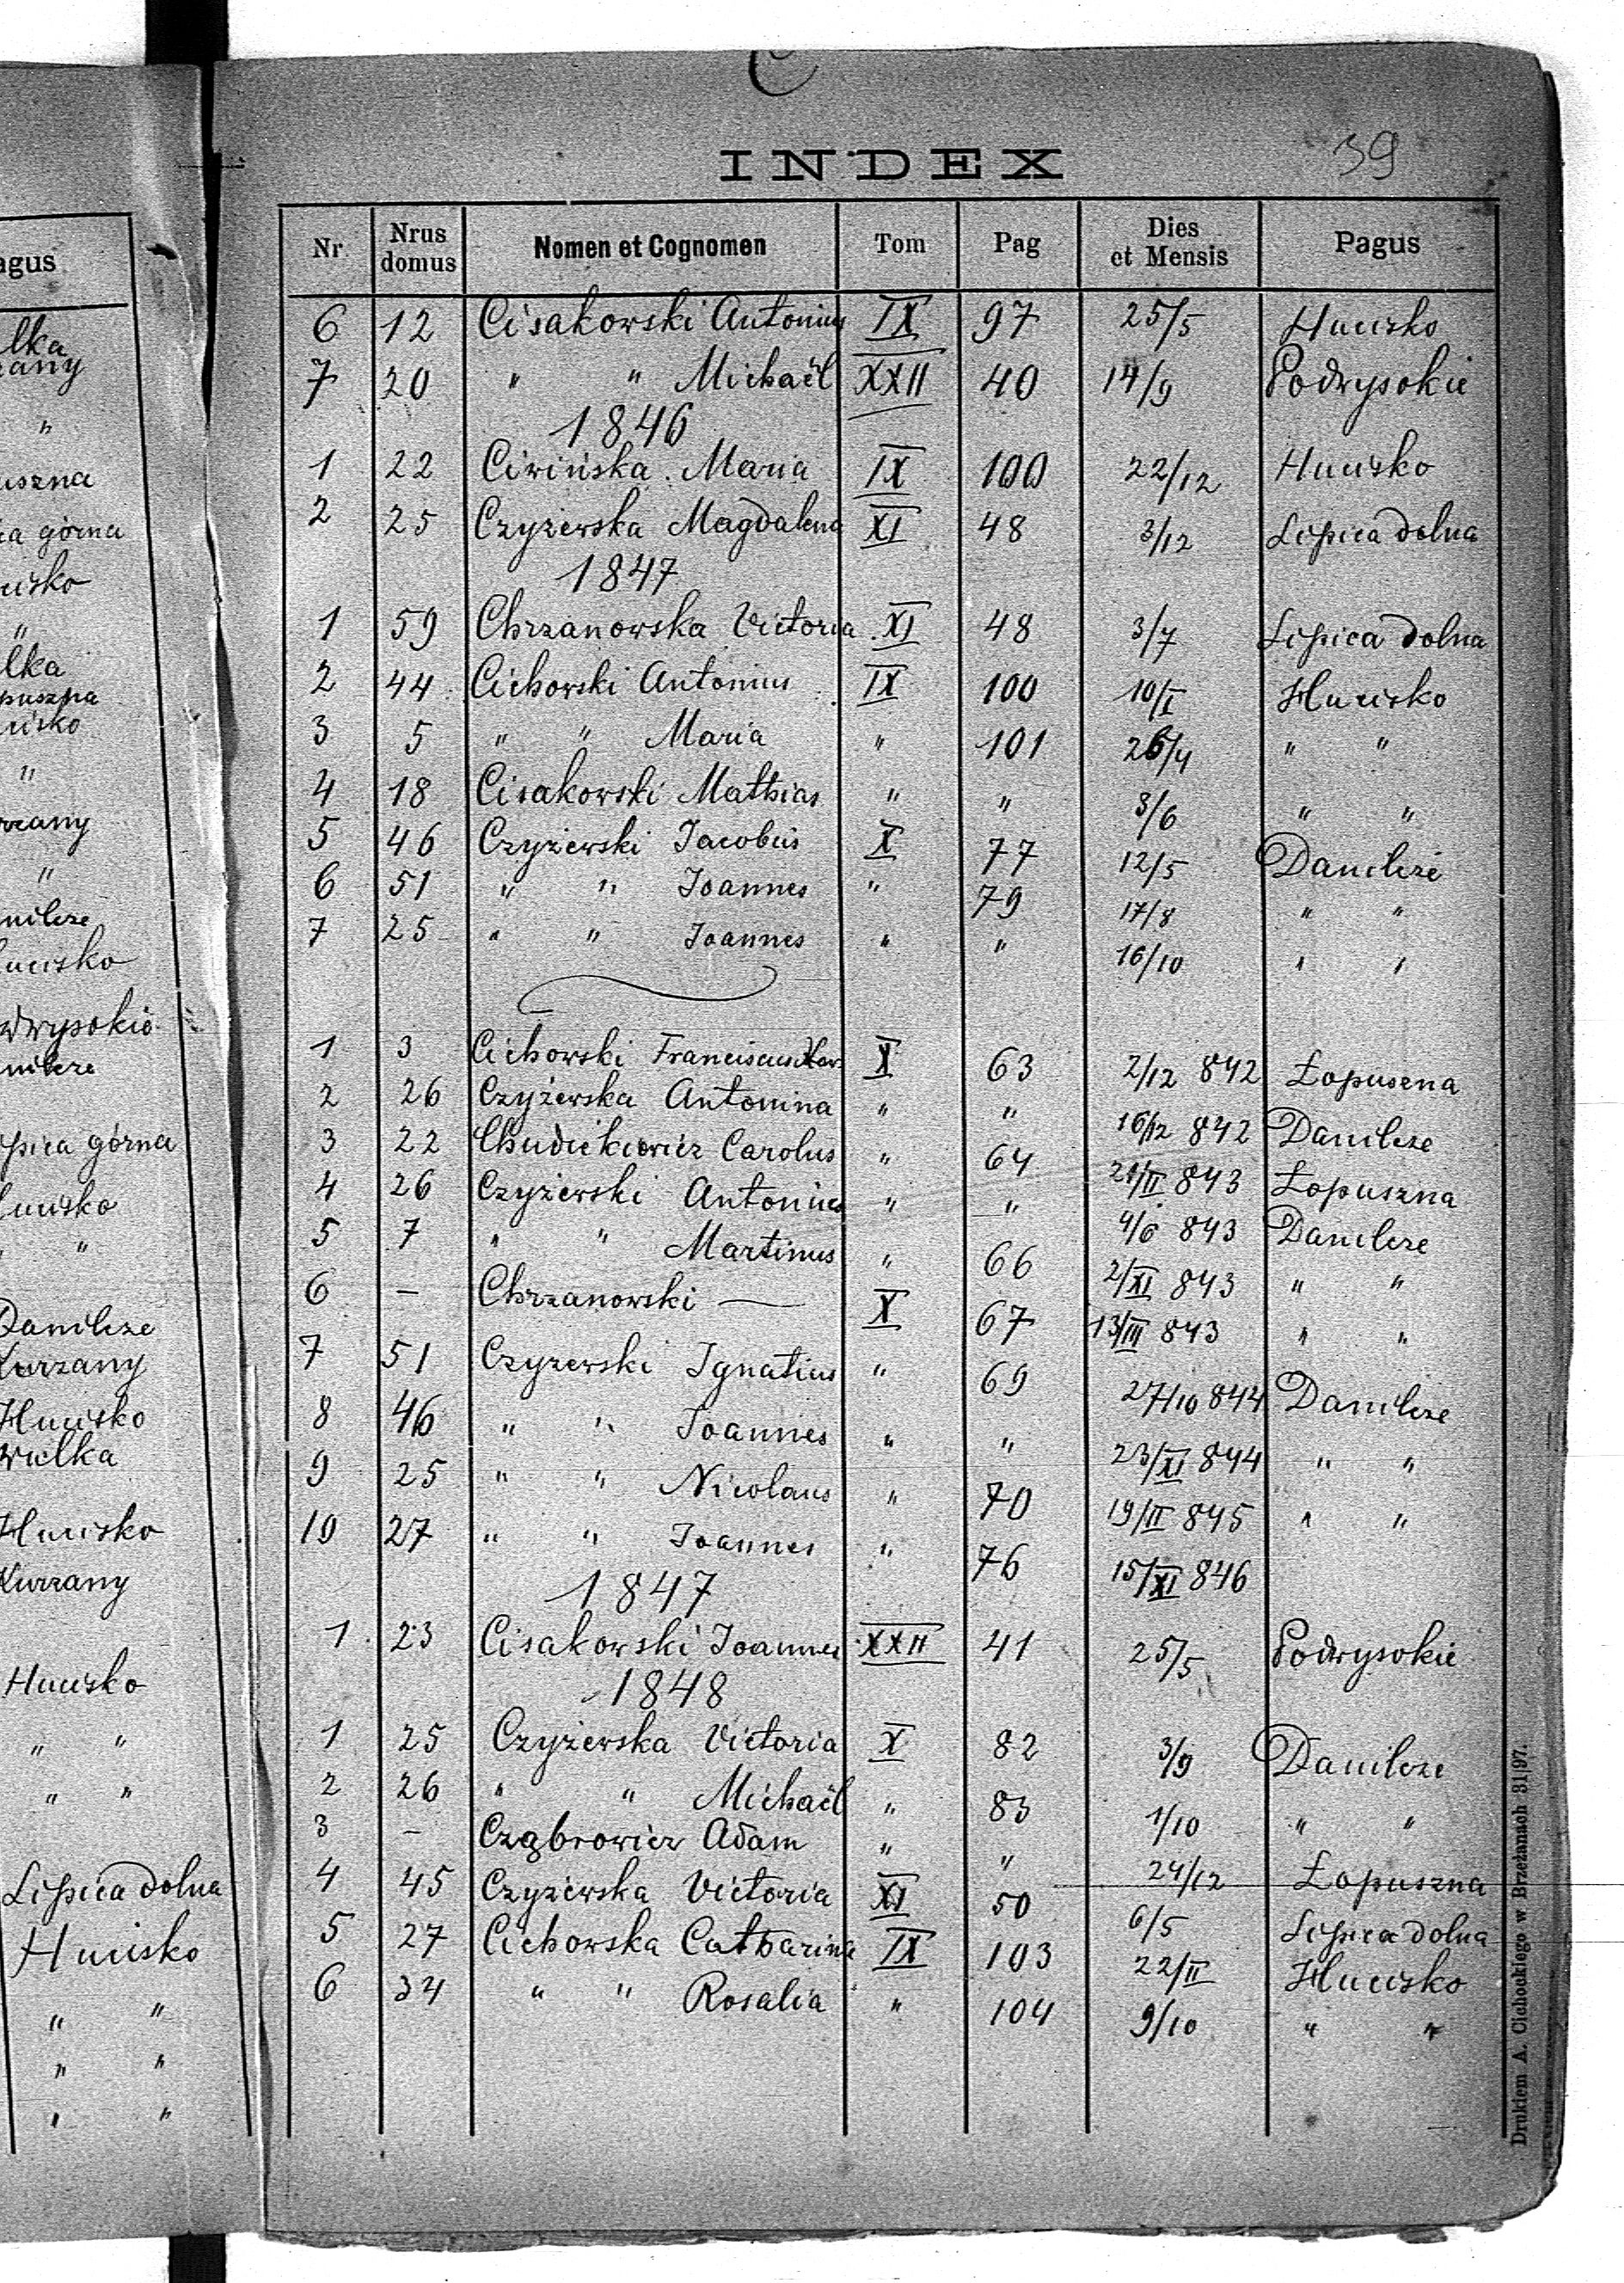 C
39
INDEX
Nr Nrus domus Nomen et Cognomen Tom Pag Dies et Mensis Pagus
6 12 Cisakowski Antonius IX 97 25/5 Hucisko
7 20 " " Michaël XXII 40 14/9 Podwysokie
1846
1 22 Ciwińska Maria IX 100 22/12 Hucisko
2 25 Czyżewska Magdalena XI 48 3/12 Lipica dolna
1847
1 59 Chrzanowska Victoria XI 48 3/7 Lipica dolna
2 44 Cichowski Antonius IX 100 10/I Hucisko
3 5 " " Maria " 101 26/4 " "
4 18 Cisakowski Mathias " " 3/6 " "
5 46 Czyżewski Jacobus X 77 12/5 Danilcze
6 51 " " Joannes " 79 17/8 " "
7 25 " " Joannes " " 16/10 " "
1 3 Cichowski Franciscus X 63 2/12 842 Łopuszna
2 26 Czyżewska Antonina " " 16/12 842 Danilcze
3 22 Chudickiewicz Carolus " 64 21/II 843 Łopuszna
4 26 Czyżewski Antonius " " 4/6 843 Danilcze
5 7 " " Martinus " 66 2/XI 843 " "
6 — Chrzanowski — X 67 13/III 843 " "
7 51 Czyzewski Ignatius " 69 27/10 844 Danilcze
8 46 " " Joannes " " 23/XI 844 " "
9 25 " " Nicolaus " 70 19/II 845 " "
10 27 " " Joannes " 76 15/XI 846
1847
1 23 Cisakowski Joannes XXII 41 25/5 Podwysokie
1848
1 25 Czyżewska Victoria X 82 3/9 Danilcze
2 26 " " Michaël " 83 1/10 " "
3 — Cząbrowicz Adam " " 24/12 Łopuszna
4 45 Czyżewska Victoria XI 50 6/5 Lipica dolna
5 27 Cichowska Catharina IX 103 22/II Hucisko
6 34 " " Rosalia " 104 9/10 " "
Drukiem A. Cichockiego w Brzeżanach 31|97.
agus
lka
zany
"
uszna
ca górna
cisko
"
lka
puszna
cisko
"
rzany
"
nilcze
ucisko
dwysokie
nilcze
ipica górna
ucisko
" "
Danilcze
Kurzany
Hucisko
wielka
Hucisko
Kurzany
Hucisko
" "
" "
Lipica dolna
Hucisko
" "
" "
" "